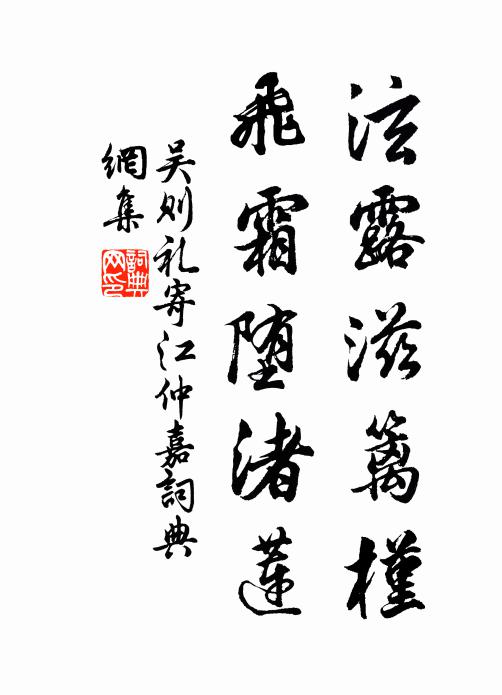 泫露滋篱槿
飛霜堕渚蓮
吴则礼寄江仲嘉詞典
網集
詞典
网印